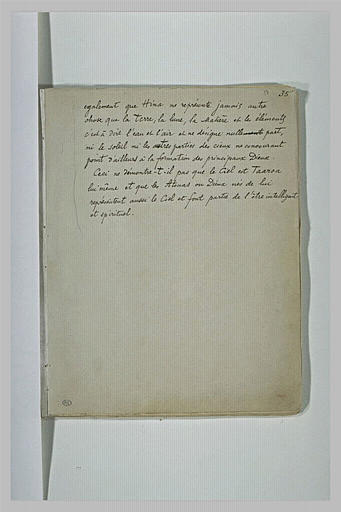 35
egalement que Hina ne représente jamais autre
chose que la Terre, la lune, la Matière et les éléments
c'est à dire l'eau et l'air et ne designe nullement part,
ni le soleil ni les autres parties des cieux ne concourant
point d'ailleurs à la formation des principaux Dieux.
Ceci ne démontre-t-il pas que le Ciel est Taaroa
lui même et que les Atouas ou Dieux nés de lui
représentent aussi le Ciel et font partie de l'être intelligent
et spirituel.